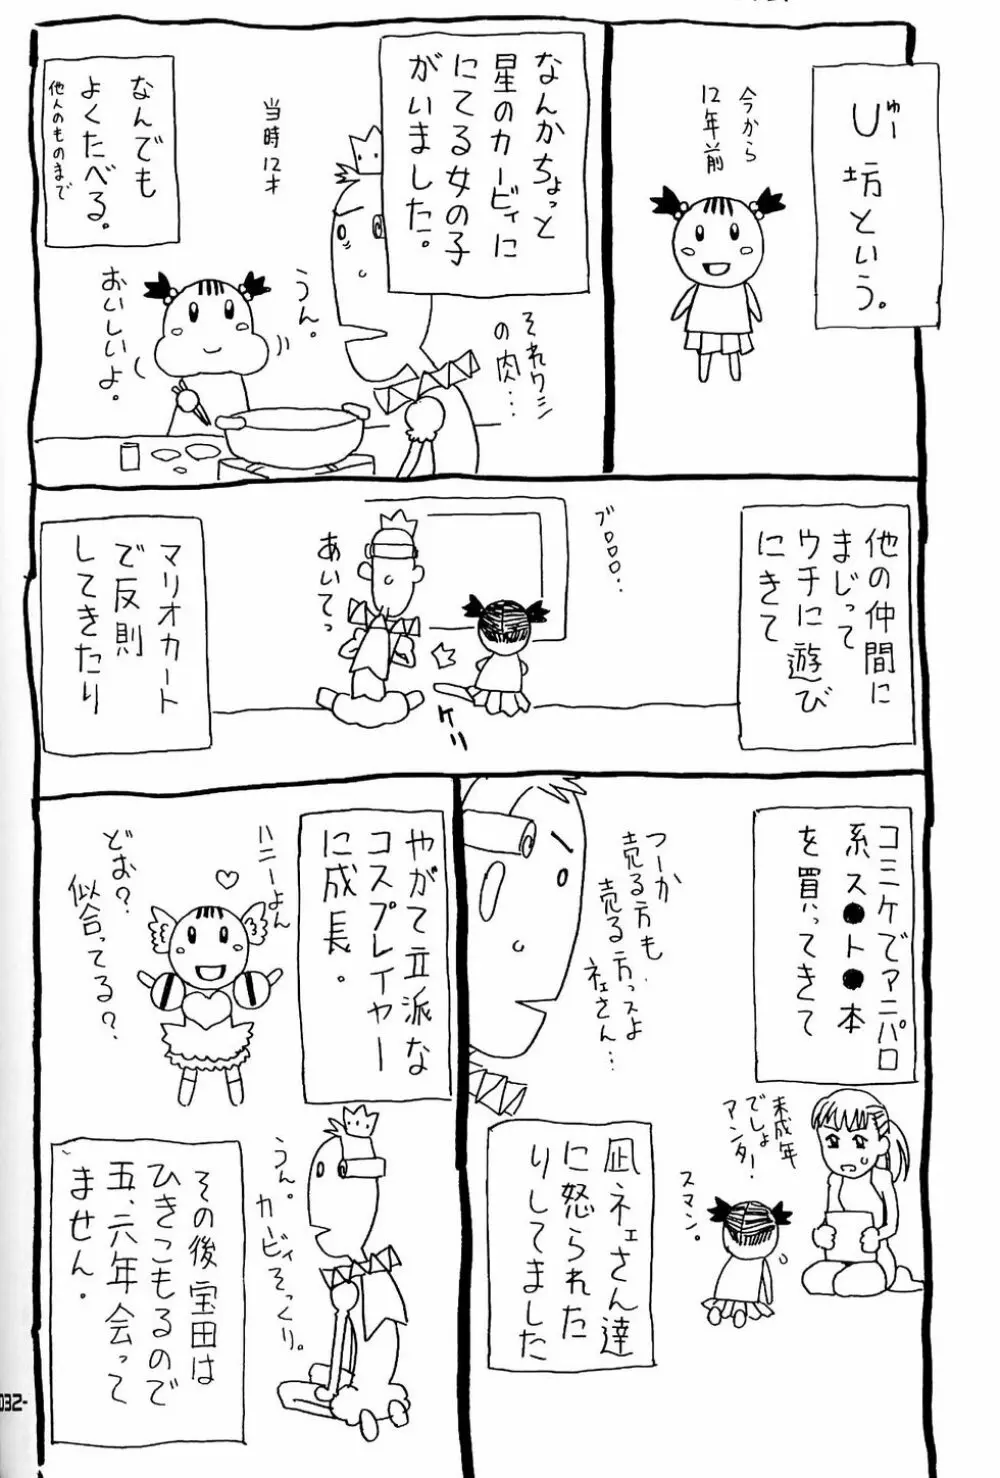 今から
12年前
じゅー
U坊という。
なんかちょっと
星のカービィに
にてる女の子
がいました。
それワシ
の肉…
うん。
当時12才
おいしいよ。
なんでも
よくたべる。
他人のものまで
他の仲間に
まじって
ウチに遊び
にきて
ブロロロ…
あいてっ
ケリッ
マリオカート
で反則
してきたり
コミケでアニパロ
系ス●ト●本
を買ってきて
つーか
売る方も
売る方っスよ
ネェさん…
未成年
でしょ
アンタ!
スマン。
凪ネェさん達
に怒られた
りしてました
やがて立派な
コスプレイヤー
に成長。
ハニーよん
どお?
似合ってる?
うん。
カービィそっくり。
その後宝田は
ひきこもるので
五、六年会って
ません。
032-